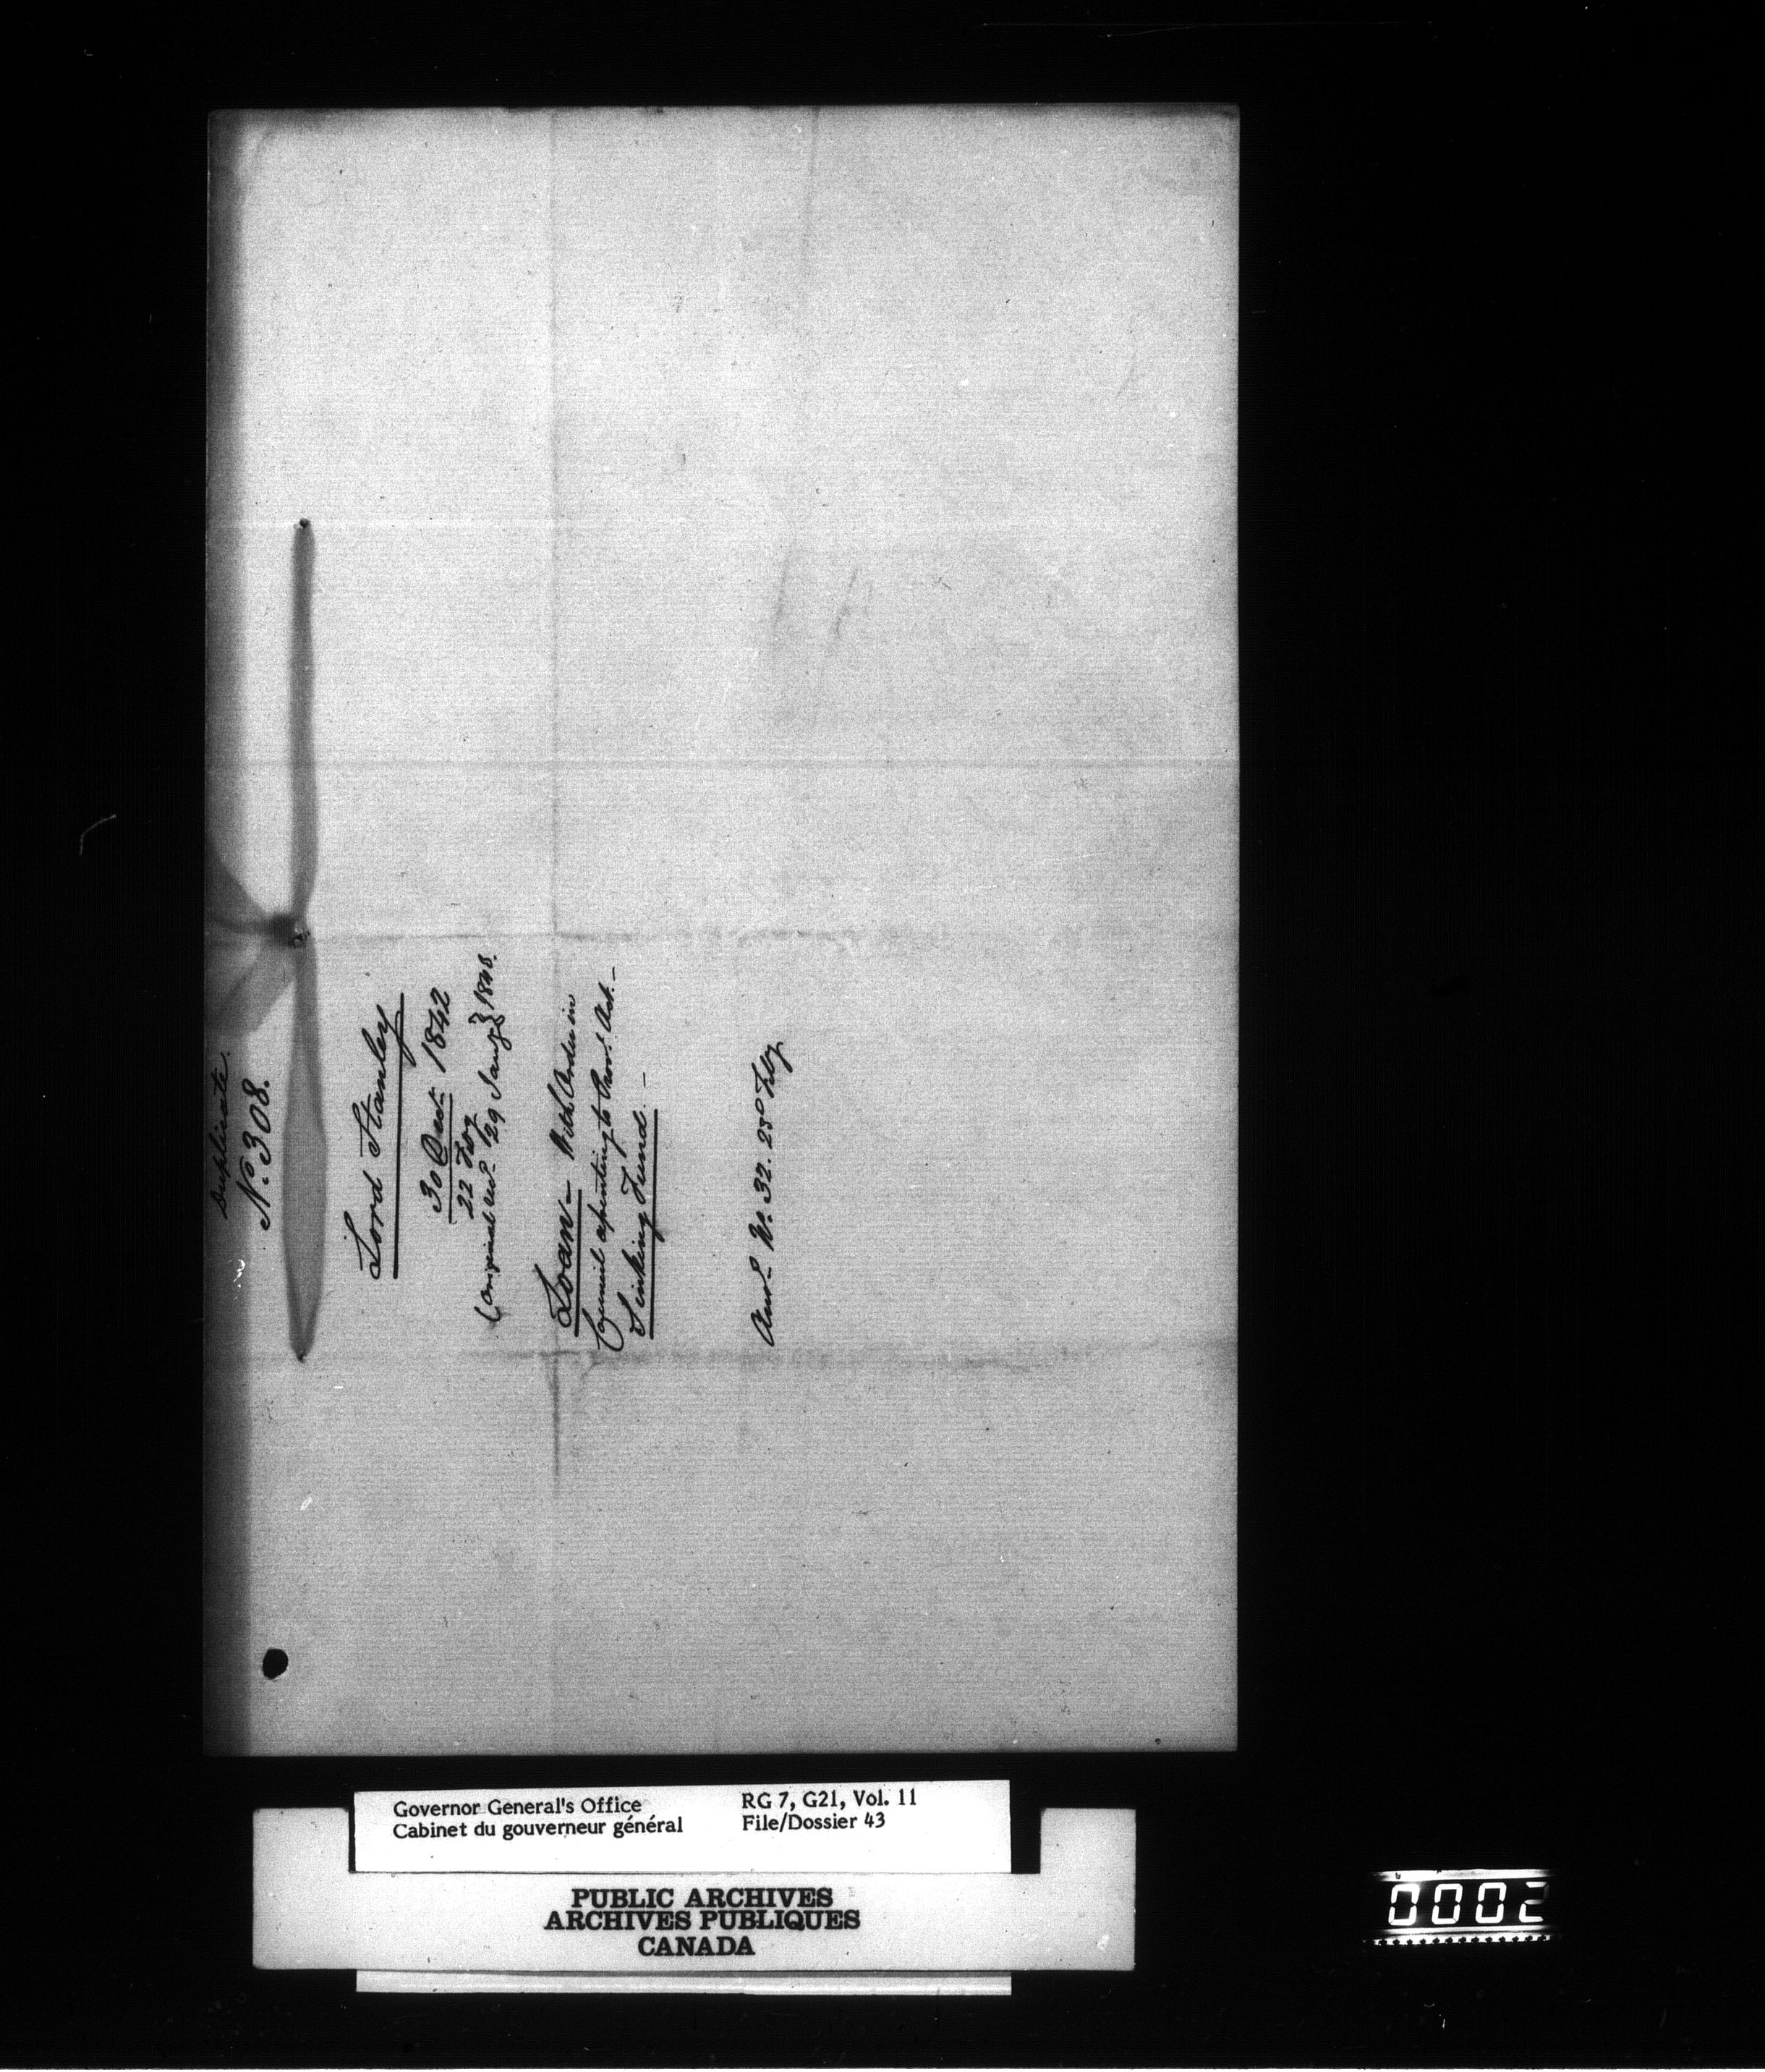 Duplicate.
No. 308.
Lord Stanley
30 Decr. 1842
22 Feby
(Original recd. 29 Jany} 1843.
Loan - With Order in
Council assenting to Provl. Act. -
Sinking Fund. -
Ansd. No. 32. 23d Feby
Governor General's Office
Cabinet du gouverneur général
RG 7, G21, Vol. 11
File/Dossier 43
PUBLIC ARCHIVES
ARCHIVES PUBLIQUES
CANADA
0002